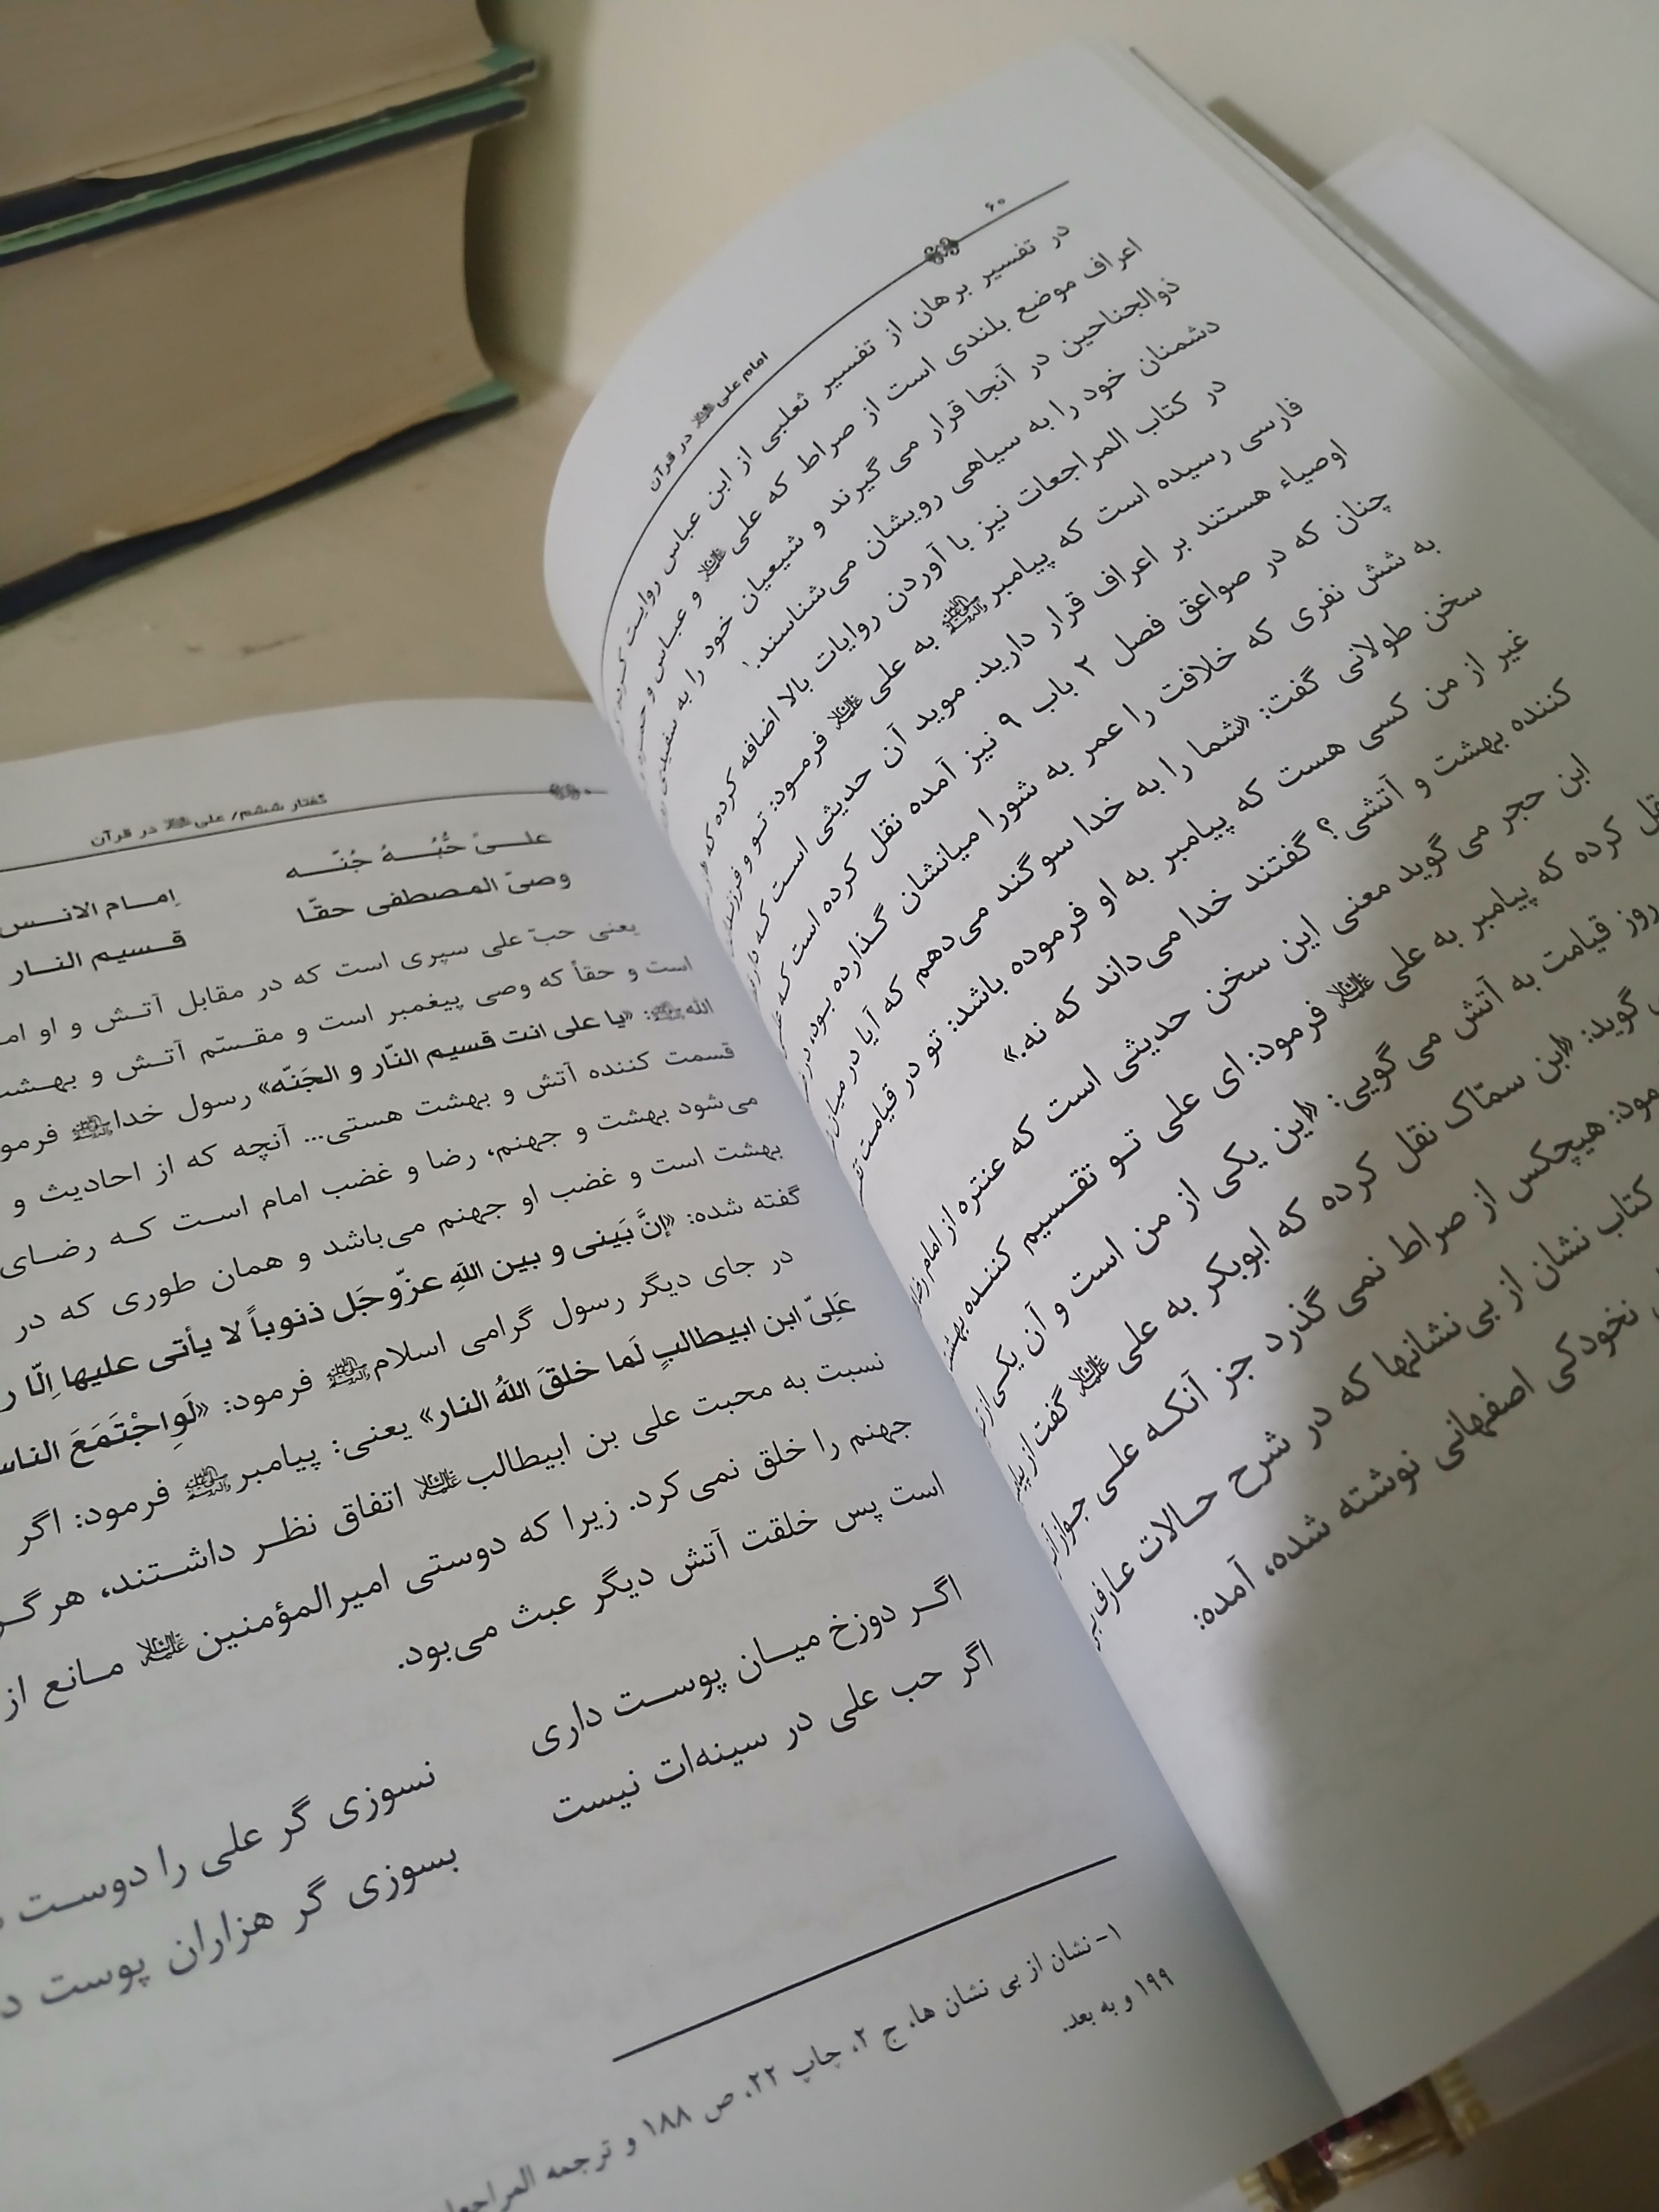 ۶۰
امام علی در قرآن
در تفسیر برهان از تفسیر ثعلبی از ابن عباس روایت
اعراف موضع بلندی است از صراط که علی و عباس و
ذوالجناحین در آنجا قرار می گیرند و شیعیان خود را به سفیدی
دشمنان خود را به سیاهی رویشان می‌شناسند.۱
در کتاب المراجعات نیز با آوردن روایات بالا اضافه کرده که
فارسی رسیده است که پیامبرﷺ به علی فرمود: تو و
اوصیاء هستند بر اعراف قرار دارید. موید آن حدیثی است که
چنان که در صواعق فصل ۲ باب ۹ نیز آمده نقل کرده است که
به شش نفری که خلافت را عمر به شورا میانشان گذارده بود،
سخن طولانی گفت: «شما را به خدا سوگند می‌دهم که آیا در میان
غیر از من کسی هست که پیامبر به او فرموده باشد: تو در قیامت
کننده بهشت و آتشی؟ گفتند خدا می‌داند که نه.»
ابن حجر می گوید معنی این سخن حدیثی است که عنتره از امام رضا
نقل کرده که پیامبر به علی فرمود: ای علی تو تقسیم کننده بهشت
روز قیامت به آتش می گویی: «این یکی از من است و آن یکی از
گوید: «ابن سمّاک نقل کرده که ابوبکر به علی گفت از
هیچکس از صراط نمی گذرد جز آنکه علی جواز
کتاب نشان از بی‌نشانها که در شرح حالات عارف
نخودکی اصفهانی نوشته شده، آمده:
گفتار ششم/ علی در قرآن
علـــیّ حُبُّــهُ جُنّــه
اِمـام الانـس
وصیّ المـصطفی حقّـا
قـسیم النـار
یعنی حبّ علی سپری است که در مقابل آتش و او
است و حقاً که وصی پیغمبر است و مقسّم آتش و بهشت
الله: «یا علی انت قسیم النّار و الجَنّه» رسول خداﷺ
قسمت کننده آتش و بهشت هستی... آنچه که از احادیث و
می‌شود بهشت و جهنم، رضا و غضب امام است که رضای
بهشت است و غضب او جهنم می‌باشد و همان طوری که در
گفته شده: «إنَّ بَینی و بین اللهِ عزّوجَل ذنوباً لا یأتی علیها اِلّا
در جای دیگر رسول گرامی اسلامﷺ فرمود: «لَوِاجْتَمَعَ
عَلِیّ ابن ابیطالبٍ لَما خلقَ اللهُ النار» یعنی: پیامبرﷺ فرمود: اگر
نسبت به محبت علی بن ابیطالب اتفاق نظر داشتند،
جهنم را خلق نمی‌کرد. زیرا که دوستی امیرالمؤمنین مانع از
است پس خلقت آتش دیگر عبث می‌بود.
اگر دوزخ میان پوست داری
نسوزی گر علی را دوست
اگر حب علی در سینه‌ات نیست
بسوزی گر هزاران پوست
۱- نشان از بی نشان ها، ج ۲، چاپ ۲۲، ص ۱۸۸ و ترجمه
۱۹۹ و به بعد.